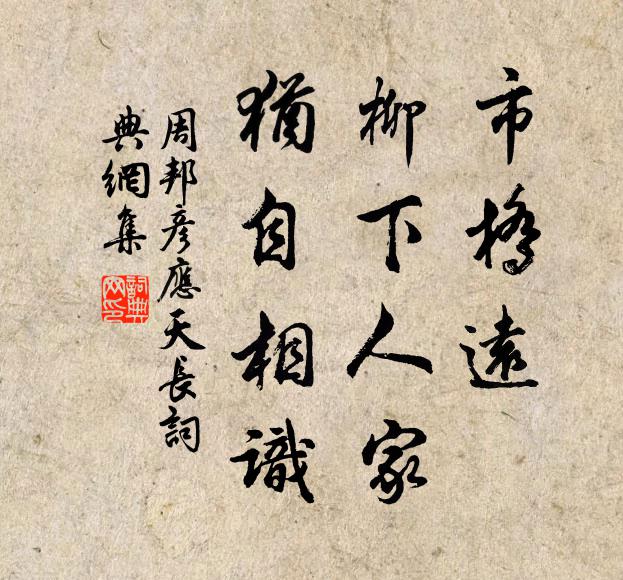 市橋遠
柳下人家
猶自相識
周邦彥應天長詞
典網集
詞典網印